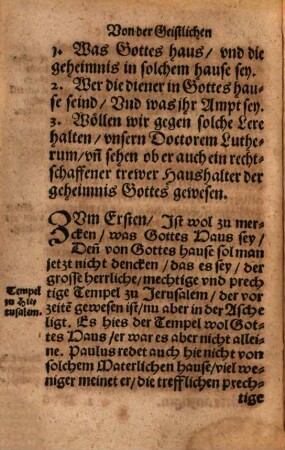 Von der Geistlichen
1. Was Gottes haus / vnd die
geheimnis in solchem hause sey.
2. Wer die diener in Gottes hau-
se seind / Vnd was jhr Ampt sey.
3. Wöllen wir gegen solche Lere
halten / vnsern Doctorem Luthe-
rum / vñ sehen ob er auch ein recht-
schaffener trewer Haushalter der
geheimnis Gottes gewesen.
ZVm Ersten / Ist wol zu mer-
cken / was Gottes Haus sey /
Deñ von Gottes hause sol man
jetzt nicht dencken / das es sey / der
grosse herrliche / mechtige vnd prech
tige Tempel zu Jerusalem / der vor
zeitē gewesen ist / nu aber in der Asche
ligt. Es hies der Tempel wol Got-
tes Haus / er war es aber nicht allei-
ne. Paulus redet auch hie nicht von
solchem Materlichen hause / viel we-
niger meinet er / die trefflichen prech-
tige
Tempel
zu Hie-
rusalem.